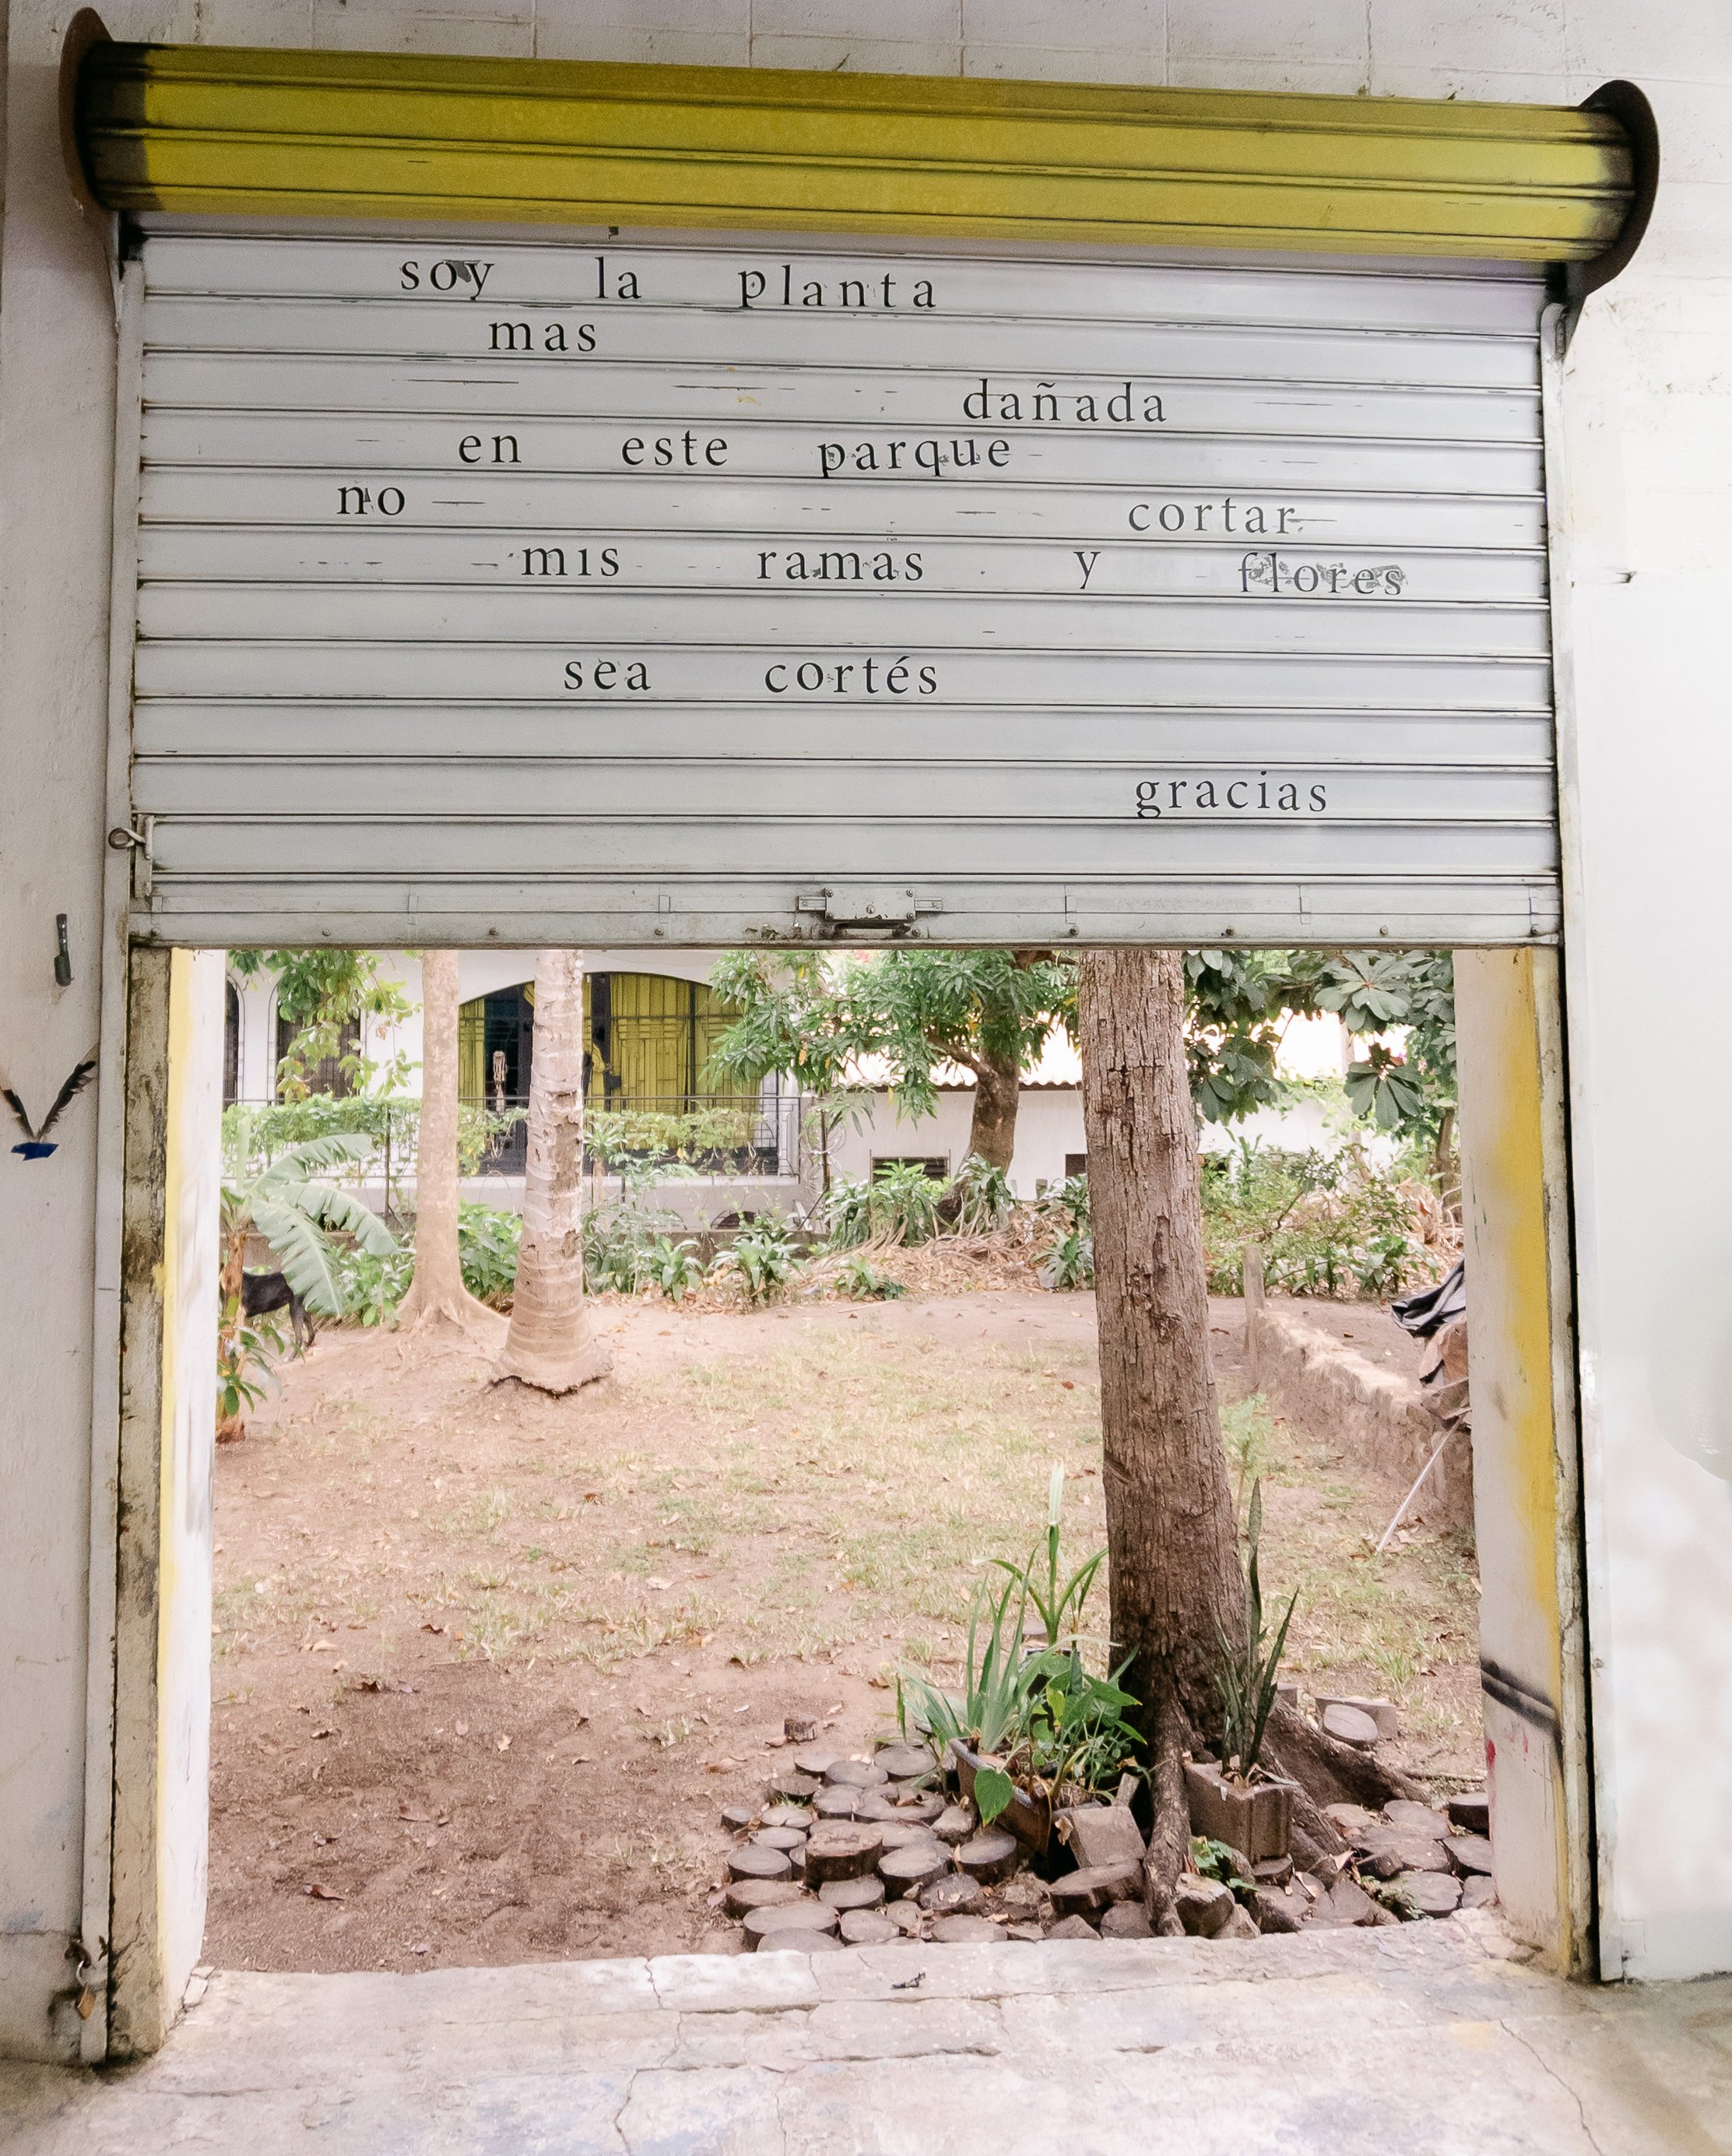 soy la planta
mas
dañada
en este parque
no cortar
mis ramas y flores
sea cortés
gracias